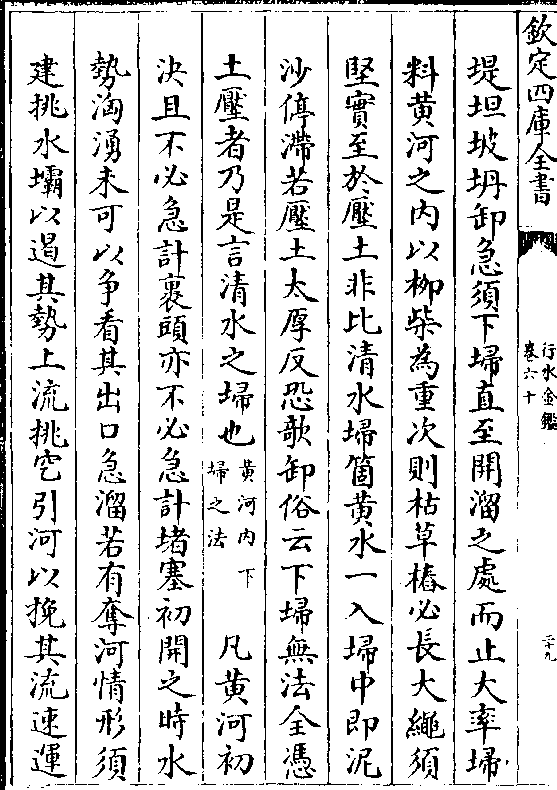 欽定四庫全書
行水金鑑
卷六十
二十九
堤坦坡坍卸急須下埽直至開溜之處而止大率埽
料黄河之内以柳柴為重次則枯草樁必長大繩須
堅實至於壓土非比清水埽箇黄水一入埽中即泥
沙停滯若壓土太厚反恐欹卸俗云下埽無法全憑
土壓者乃是言清水之埽也黄河内下埽之法 凡黄河初
決且不必急計裹頭亦不必急計堵塞初開之時水
勢洶湧未可以争看其出口急溜若有奪河情形須
建挑水壩以遏其勢上流挑空引河以挽其流速運